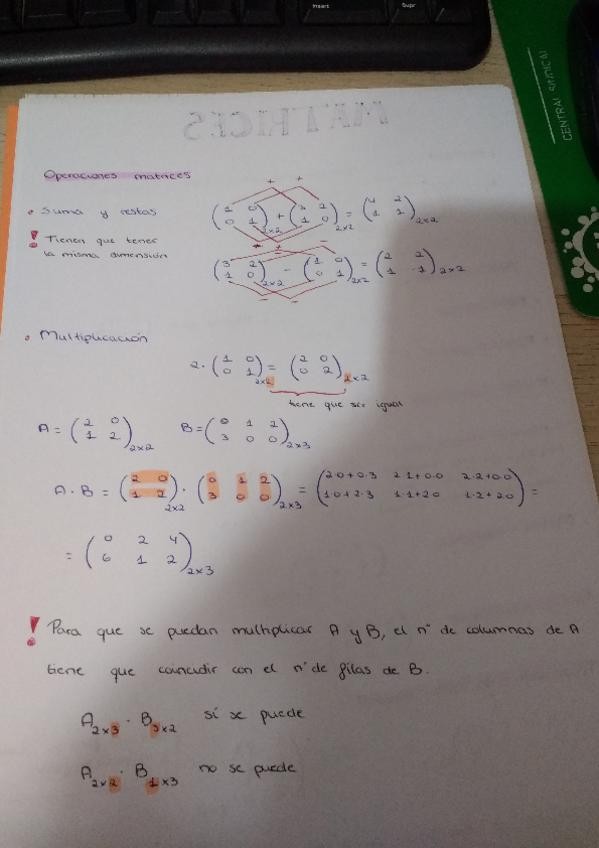 Insert
Supr
CENTRAL SINDICAL
MATRICES
Operaciones matrices
• Suma y restas
(1 0 / 0 1)2x2 + (3 2 / 1 0)2x2 = (4 2 / 1 1)2x2
! Tienen que tener
la misma dimensión
(3 2 / 1 0)2x2 - (1 0 / 0 1)2x2 = (2 2 / 1 -1)2x2
• Multiplicación
2· (1 0 / 0 1)2x2 = (2 0 / 0 2)2x2
tiene que ser igual
A = (2 0 / 1 2)2x2 B = (0 1 2 / 3 0 0)2x3
A · B = (2 0 / 1 2)2x2 · (0 1 2 / 3 0 0)2x3 = (2·0+0·3 2·1+0·0 2·2+0·0 / 1·0+2·3 1·1+2·0 1·2+2·0) =
= (0 2 4 / 6 1 2)2x3
! Para que se puedan multiplicar A y B, el nº de columnas de A
tiene que coincidir con el nº de filas de B.
A2x3 · B3x2 sí se puede
A2x2 · B1x3 no se puede